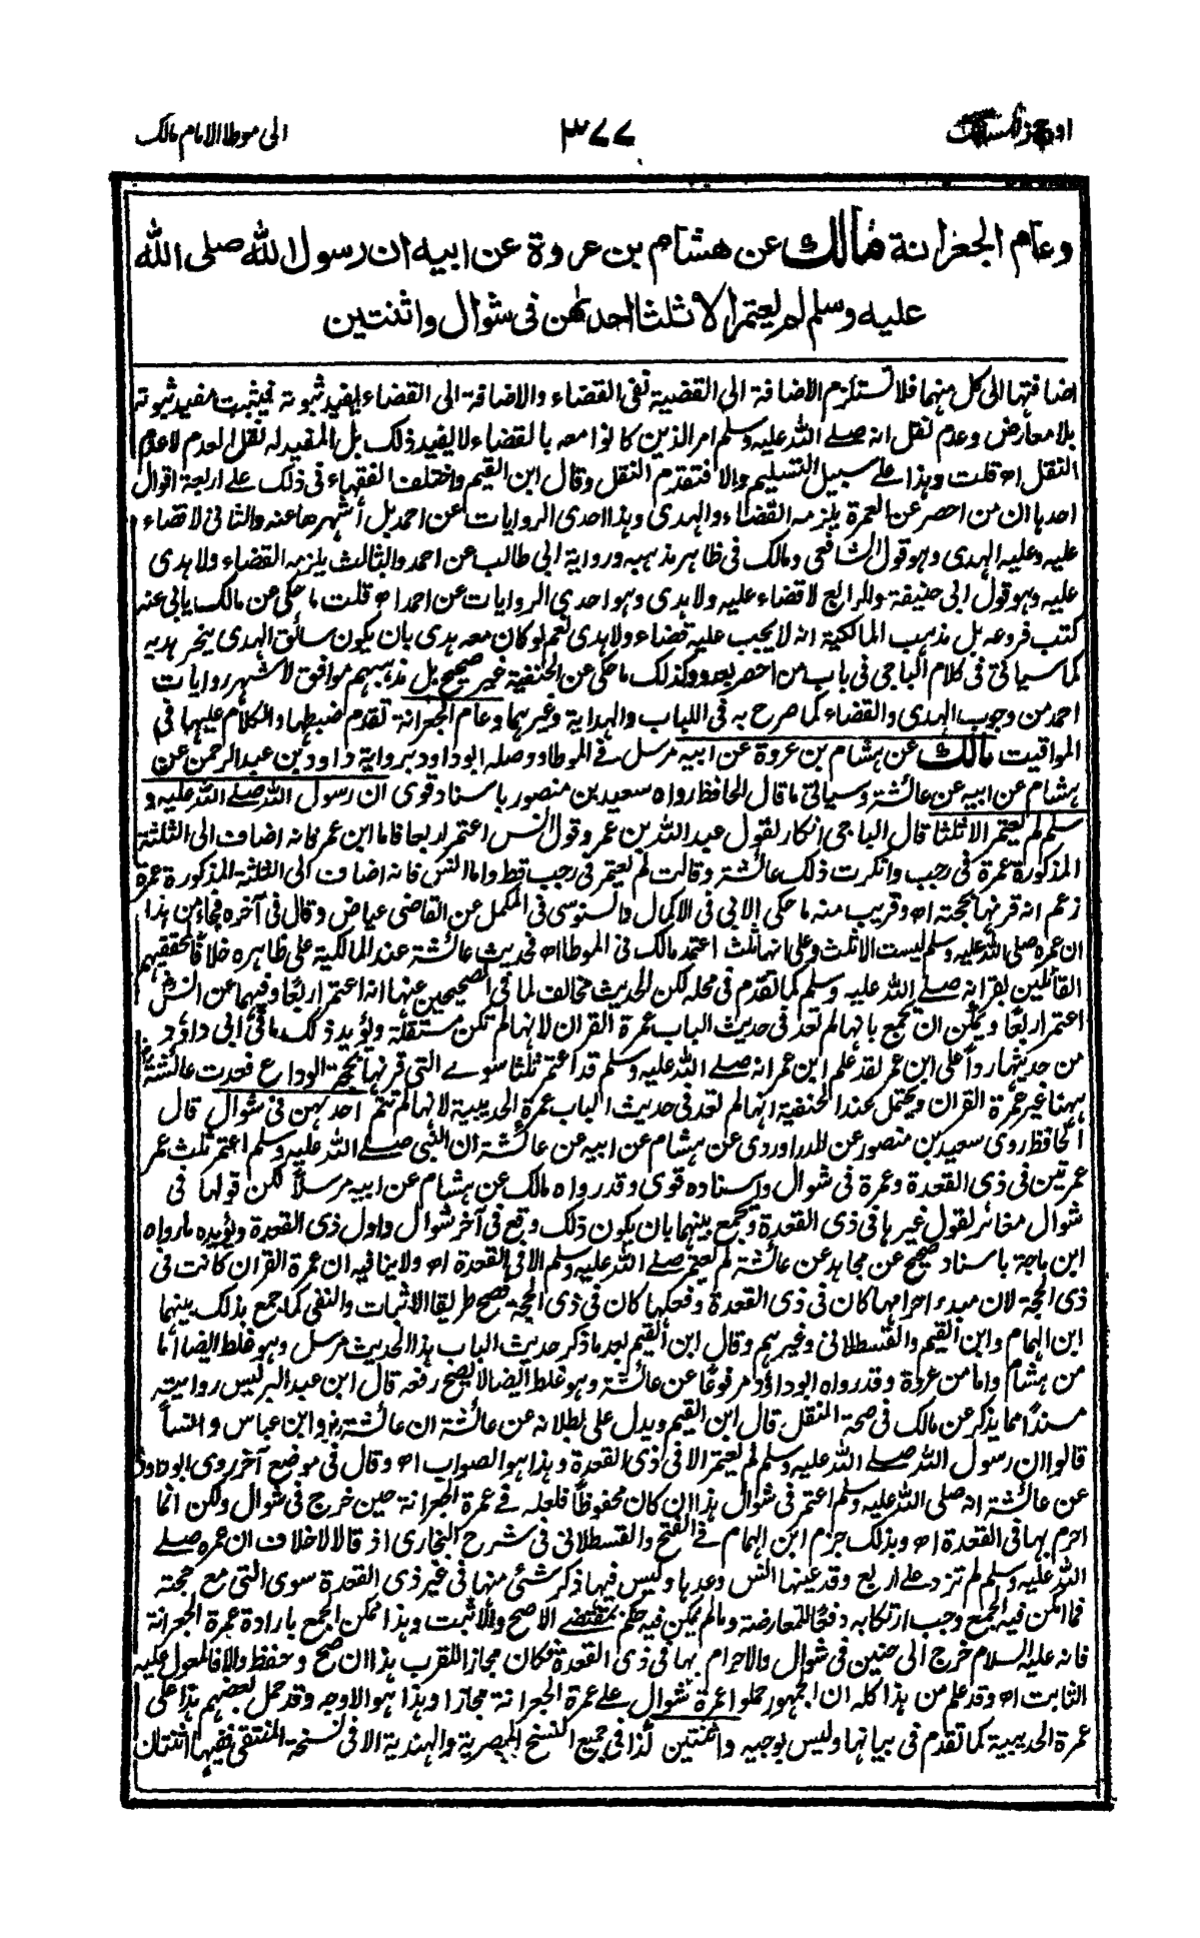 اوجز المسالك ٣٧٧ الى موطا الامام مالك
وعام الجعرانة مالك عن هشام بن عروة عن ابيه ان رسول الله صلى الله
عليه وسلم لم يعتمر الا ثلثا احداهن فى شوال واثنتين
اضافتها الى كل منهما فلا تستلزم الاضافة الى القضية نفى القضاء والاضافة الى القضاء يفيد ثبوته فيثبت مفيد ثبوته
بلا معارض وعدم نقل انه صلے الله عليه وسلم امر الذين كانوا معه بالقضاء لا يفيد ذلك بل المفيد له نقل العدم لا عدم
النقل اه قلت وهذا على سبيل التسليم والا فتقدم النقل وقال ابن القيم واختلف الفقهاء فى ذلك على اربعة اقوال
احدها ان من احصر عن العمرة يلزمه القضاء والهدى وهذا احدى الروايات عن احمد بل أشهرها عنه والثانى لا قضاء
عليه وعليه الهدى وهو قول الشافعى ومالك فى ظاهر مذهبه ورواية ابى طالب عن احمد والثالث يلزمه القضاء ولا هدى
عليه وهو قول ابى حنيفة والرابع لا قضاء عليه ولا هدى وهو احدى الروايات عن احمد اه قلت ما حكى عن مالك يابى عنه
كتب فروعه بل مذهب المالكية انه لا يجب عليه قضاء ولا هدى نعم لو كان معه هدى بان يكون سائق الهدى ينحر هديه
كما سياتى فى كلام الباجى فى باب من احصر بعدو وكذلك ما حكى عن الحنفية غير صحيح بل مذهبهم موافق لاشهر روايات
احمد من وجوب الهدى والقضاء كما صرح به فى اللباب والهداية وغيرهما وعام الجعرانة تقدم ضبطها والكلام عليها فى
المواقيت مالك عن هشام بن عروة عن ابيه مرسل فے الموطا ووصله ابو داود برواية داود بن عبد الرحمن عن
هشام عن ابيه عن عائشة وسياتى ما قال الحافظ رواه سعيد بن منصور باسناد قوى ان رسول الله صلے الله عليه و
سلم لم يعتمر الا ثلثا قال الباجى انكار لقول عبد الله بن عمر وقول انس اعتمر اربعا فاما ابن عمر فانه اضاف الى الثلثة
المذكورة عمرة فى رجب وانكرت ذلك عائشة وقالت لم يعتمر فى رجب قط واما انس فانه اضاف الى الثلثة المذكورة عمرة
زعم انه قرنها بحجته اه وقريب منه ما حكى الابى فى الاكمال والسنوسى فى المكمل عن القاضى عياض وقال فى آخره فجاء من هذا
ان عمره صلى الله عليه وسلم ليست الا ثلث وعلى انها ثلث اعتمد مالك فى الموطا اه فحديث عائشة عند المالكية على ظاهره خلافًا لمحققيهم
القائلين بقرانه صلے الله عليه وسلم كما تقدم فى محله لكن الحديث مخالف لما فى الصحيحين عنها انه اعتمر اربعًا وفيهما عن انس
اعتمر اربعًا ويمكن ان يجمع بانها لم تعد فى حديث الباب عمرة القران لانها لم تكن مستقلة ويؤيد ذلك ما فى ابى داؤد
من حديثها رداً على ابن عمر لقد علم ابن عمر انه صلے الله عليه وسلم قد اعتمر ثلثا سوے التى قرنها بحجة الوداع فعدت عائشة
ههنا غير عمرة القران ويحتمل عند الحنفية انها لم تعد فى حديث الباب عمرة الحديبية لانها لم تتم احدهن فى شوال قال
الحافظ روى سعيد بن منصور عن الدراوردى عن هشام عن ابيه عن عائشة ان النبى صلے الله عليه وسلم اعتمر ثلث عمر
عمرتين فى ذى القعدة وعمرة فى شوال واسناده قوى وقد رواه مالك عن هشام عن ابيه مرسلاً لكن قولها فى
شوال مغائر لقول غيرها فى ذى القعدة ويجمع بينهما بان يكون ذلك وقع فى آخر شوال واول ذى القعدة ويؤيده ما رواه
ابن ماجة باسناد صحيح عن مجاهد عن عائشة لم يعتمر صلے الله عليه وسلم الا فى القعدة اه ولا ينافيه ان عمرة القران كانت فى
ذى الحجة لان مبدء احرامها كان فى ذى القعدة وفعلها كان فى ذى الحجة فصح طريقا الاثبات والنفى كما جمع بذلك بينهما
ابن الهمام وابن القيم والقسطلانى وغيرهم وقال ابن القيم بعد ما ذكر حديث الباب هذا الحديث مرسل وهو غلط ايضا أما
من هشام واما من عروة وقد رواه ابو داؤد مرفوعًا عن عائشة وهو غلط ايضا لا يصح رفعه قال ابن عبد البر ليس روايته
مسنداً مما يذكر عن مالك فى صحة النقل قال ابن القيم ويدل على بطلانه عن عائشة ان عائشة وابن عباس وانساً
قالوا ان رسول الله صلے الله عليه وسلم لم يعتمر الا فى ذى القعدة وهذا هو الصواب اه وقال فى موضع آخر روى ابو داود
عن عائشة انه صلى الله عليه وسلم اعتمر فى شوال هذا ان كان محفوظاً فلعله فے عمرة الجعرانة حين خرج فى شوال ولكن انما
احرم بها فى القعدة اه وبذلك جزم ابن الهمام فے الفتح والقسطلانى فى شرح البخارى اذ قالا لا خلاف ان عمره صلے
الله عليه وسلم لم تزد على اربع وقد عينها انس وعدها وليس فيها ذكر شئ منها فى غير ذى القعدة سوى التى مع حجته
فما امكن فيه الجمع وجب ارتكابه دفعًا للمعارضة وما لم يمكن فيه حكم بمقتضے الاصح والاثبت وهذا ممكن الجمع بارادة عمرة الجعرانة
فانه عليه السلام خرج الى حنين فى شوال والاحرام بها فى ذى القعدة فكان مجازا للقرب هذا ان صح وحفظ والا فالمعول عليه
الثابت اه وقد علم من هذا كله ان الجمهور حملوا عمرة شوال على عمرة الجعرانة مجازا وهذا هو الاوجه وقد حمل بعضهم هذا على
عمرة الحديبية كما تقدم فى بيانها وليس بوجيه واثنتين كذا فى جميع النسخ المصرية والهندية الا فى نسخة المنتقى ففيها اثنتان